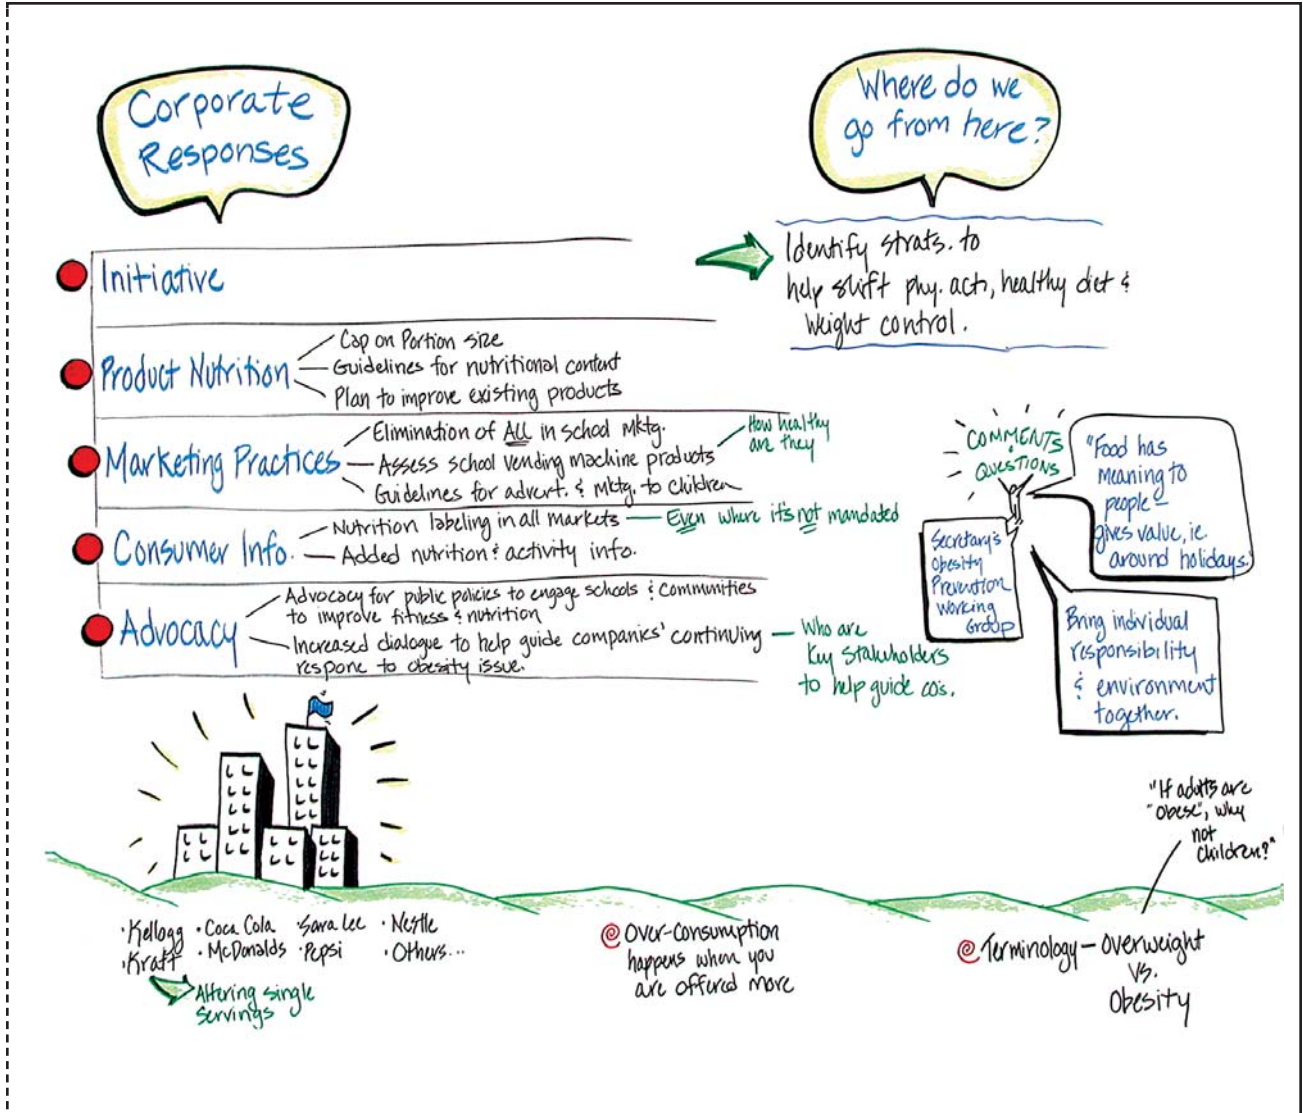 Corporate
Responses
Initiative
Product Nutrition
Cap on Portion size
Guidelines for nutritional content
Plan to improve existing products
Marketing Practices
Elimination of ALL in school Mktg.
Assess school vending machine products
How healthy
are they
Guidelines for advert. & Mktg. to children
Consumer Info.
Nutrition labeling in all markets — Even where it's not mandated
Added nutrition & activity info.
Advocacy
Advocacy for public policies to engage schools & Communities
to improve fitness & nutrition
Increased dialogue to help guide companies' continuing
respone to obesity issue.
Who are
Key Stakeholders
to help guide co's.
Where do we
go from here?
Identify strats. to
help shift phy. act., healthy diet &
Weight control.
COMMENTS &
QUESTIONS
"Food has
meaning to
people —
gives value, ie.
around holidays.
Secretary's
Obesity
Prevention
Working
Group
Bring individual
responsibility
& environment
together.
· Kellogg
· Kraft
· Coca Cola
· McDonalds
· Sara Lee
· Pepsi
· Nestle
· Others...
Altering single
servings
Over-consumption
happens when you
are offered more
"If adults are
"obese", why
not
children?"
Terminology — Overweight
vs.
Obesity